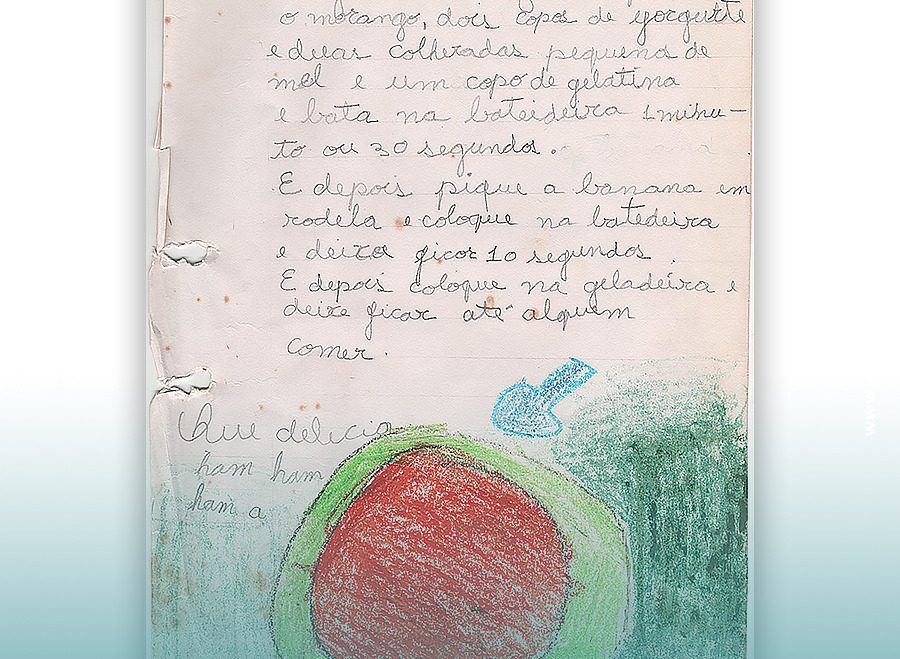 o morango, dois copos de yorgurte
e duas colheradas pequena de
mel e um copo de gelatina
e bata na bateideira 1 minu-
to ou 30 segundos.
E depois pique a banana em
rodela e coloque na batedeira
e deixa ficar 10 segundos.
E depois coloque na geladeira e
deixe ficar até alguem
comer.
Que delicia
ham ham
ham a